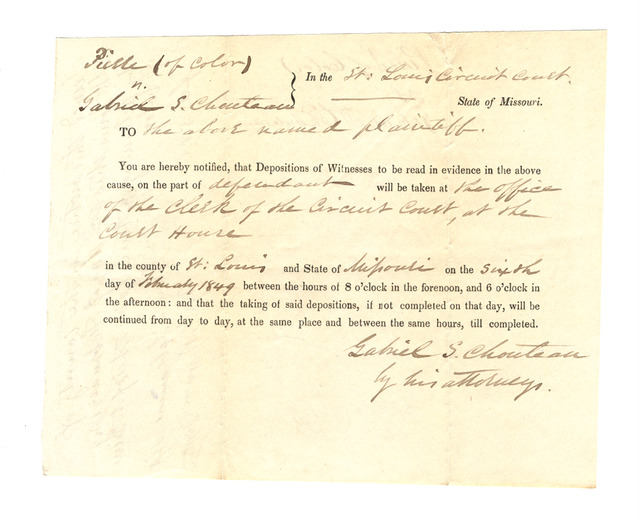 Pierre (of color)
v.
Gabriel S. Chouteau
In the St: Louis Circuit Court.
State of Missouri.
TO the above named plaintiff.
You are hereby notified, that Depositions of Witnesses to be read in evidence in the above
cause, on the part of defendant will be taken at the office
of the Clerk of the Circuit Court, at the
Court House
in the county of St: Louis and State of Missouri on the sixth
day of February 1849 between the hours of 8 o'clock in the forenoon, and 6 o'clock in
the afternoon: and that the taking of said depositions, if not completed on that day, will be
continued from day to day, at the same place and between the same hours, till completed.
Gabriel S. Chouteau
by his attorneys.